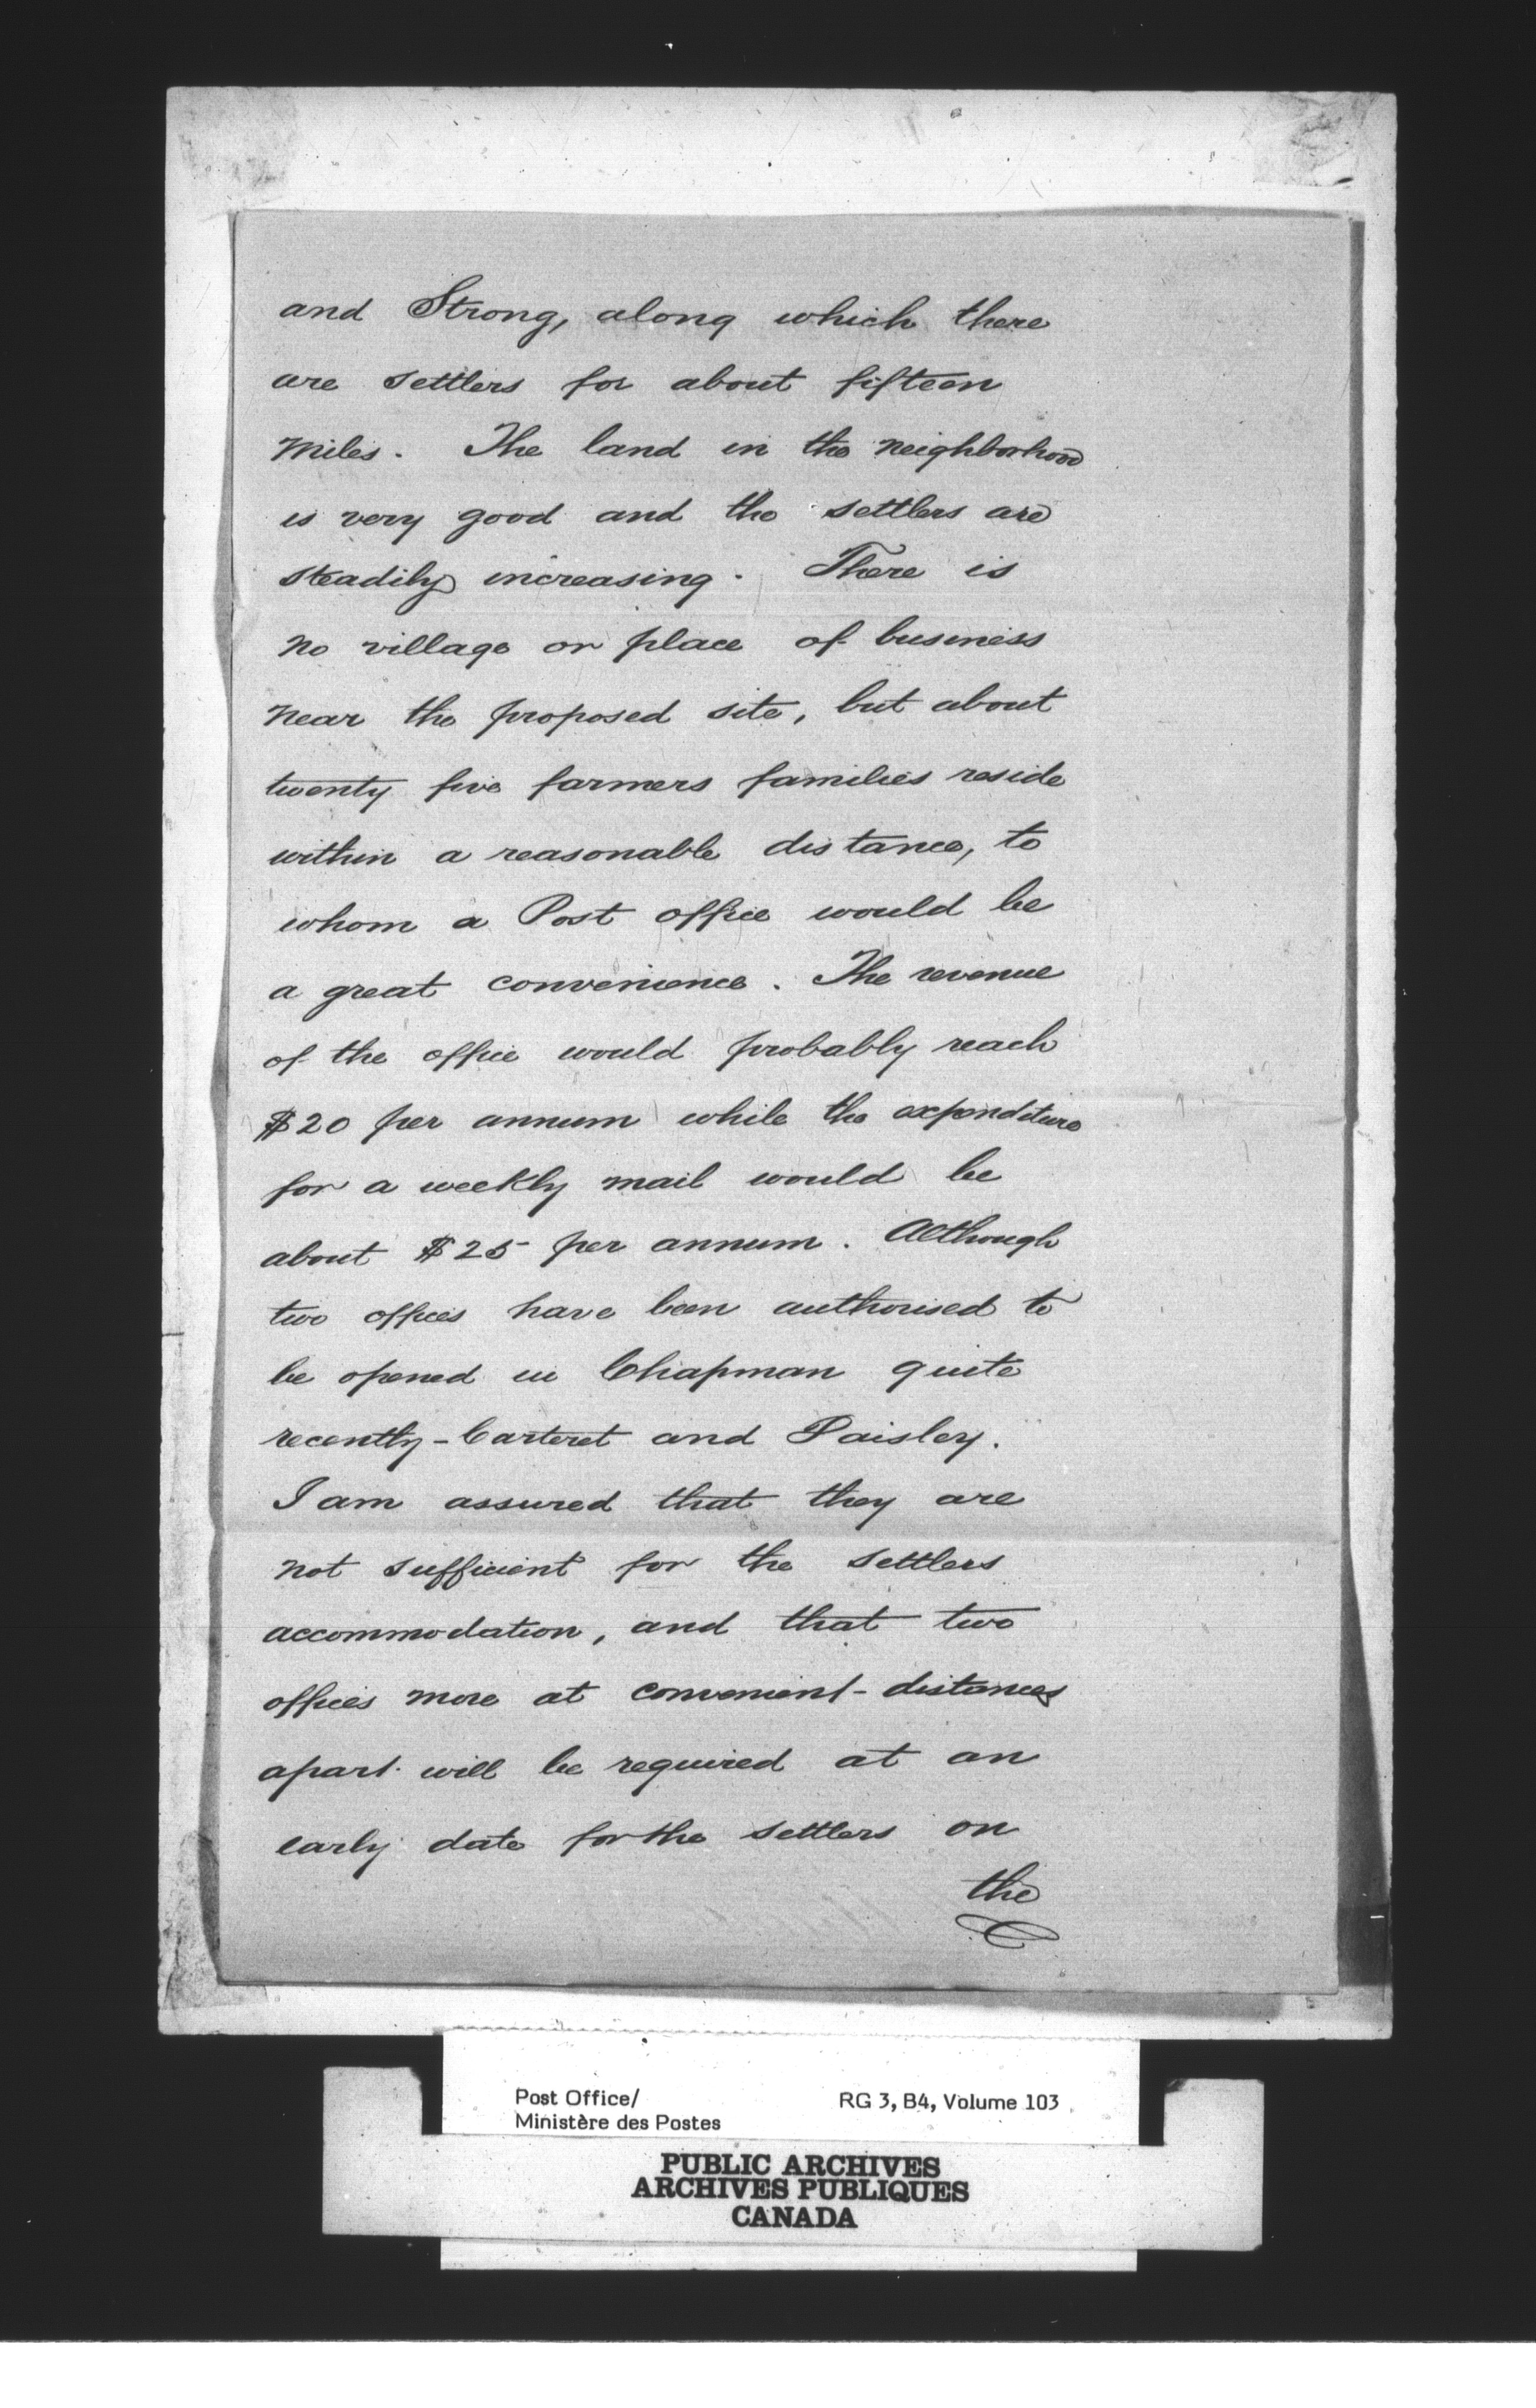 and Strong, along which there
are settlers for about fifteen
miles. The land in the neighborhood
is very good and the settlers are
steadily increasing. There is
no village or place of business
near the proposed site, but about
twenty five farmers families reside
within a reasonable distance, to
whom a Post office would be
a great convenience. The revenue
of the office would probably reach
$20 per annum while the expenditure
for a weekly mail would be
about $25 per annum. Although
two offices have been authorised to
be opened in Chapman quite
recently - Carteret and Paisley.
I am assured that they are
not sufficient for the settlers
accommodation, and that two
offices more at convenient distances
apart will be required at an
early date for the settlers on
the
Post Office/
Ministère des Postes
RG 3, B4, Volume 103
PUBLIC ARCHIVES
ARCHIVES PUBLIQUES
CANADA